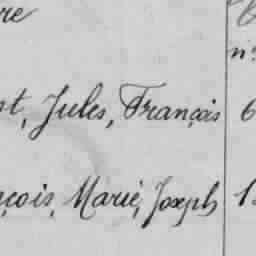 re
st, Jules, François 6
çois, Marie, Joseph 1